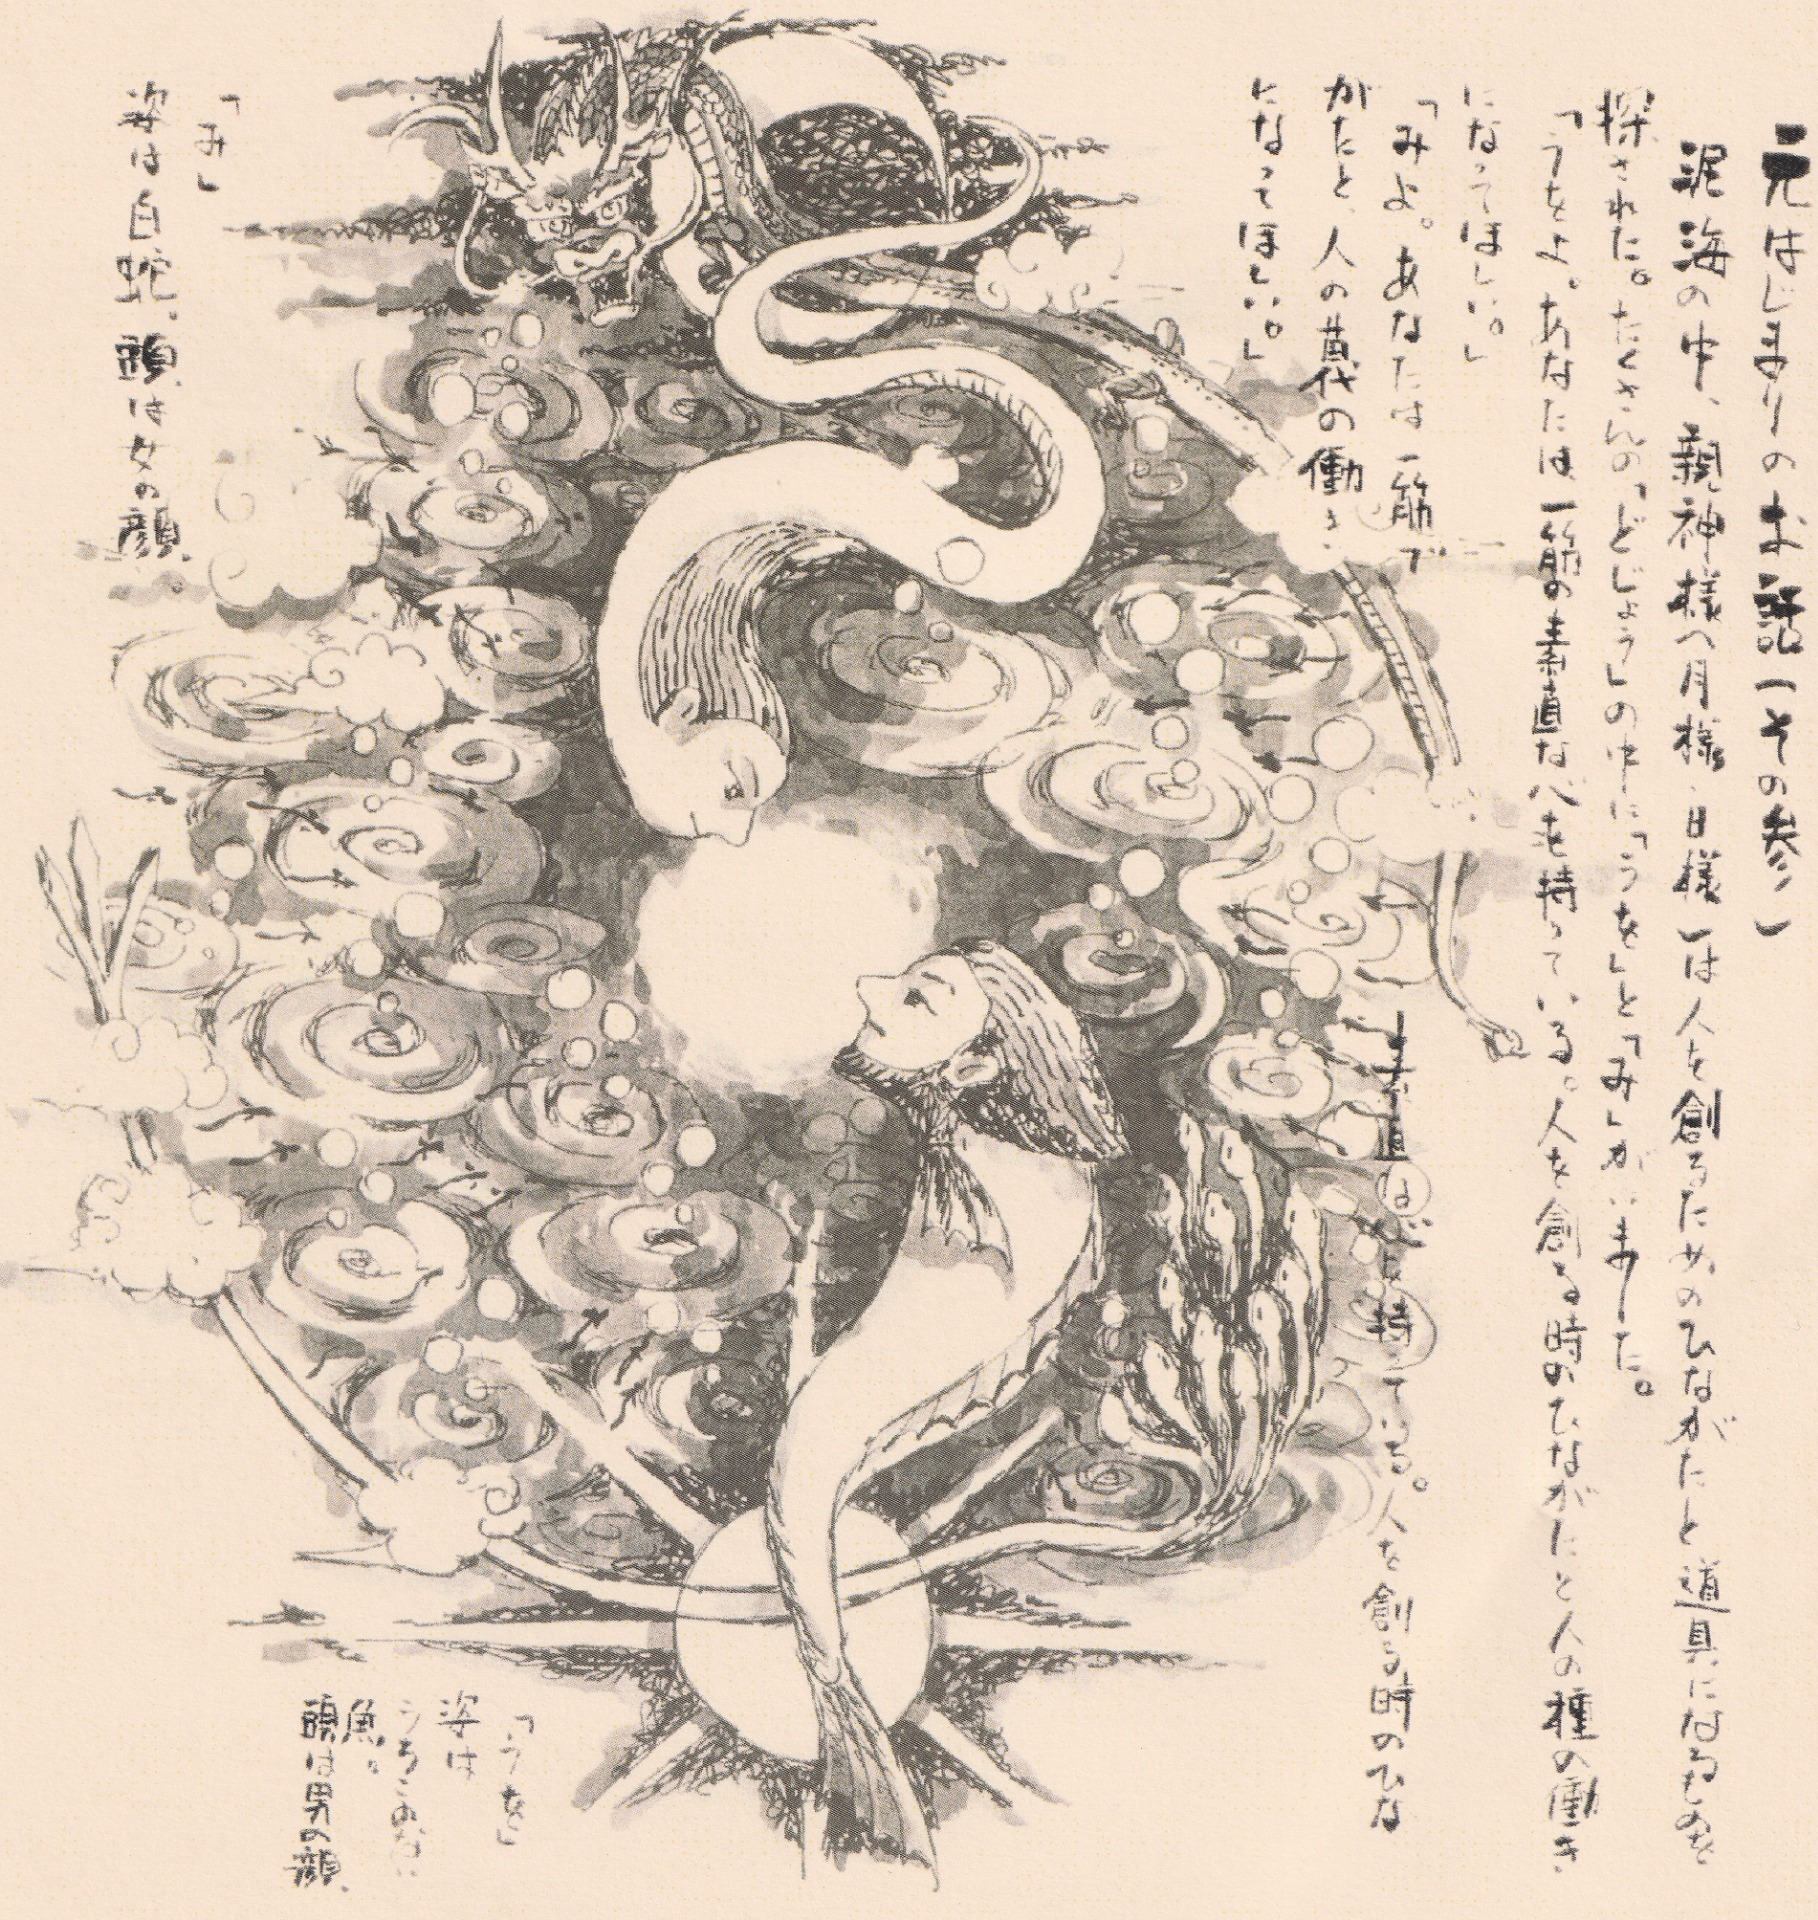 元はじまりのお話(その参)
泥海の中、親神様(月様・日様)は人を創るためのひながたと道具になるものを
探された。たくさんの「どじょう」の中に「うを」と「み」がいました。
「うをよ。あなたは一筋の素直な心を持っている。人を創る時のひながたと人の種の働き
になってほしい。」
「みよ。あなたは一筋で素直な心を持っている。人を創る時のひな
がたと、人の苗代の働き
になってほしい。」
「み」
姿は白蛇。頭は女の顔。
「うを」
姿は
うろこのない
魚。
頭は男の顔。